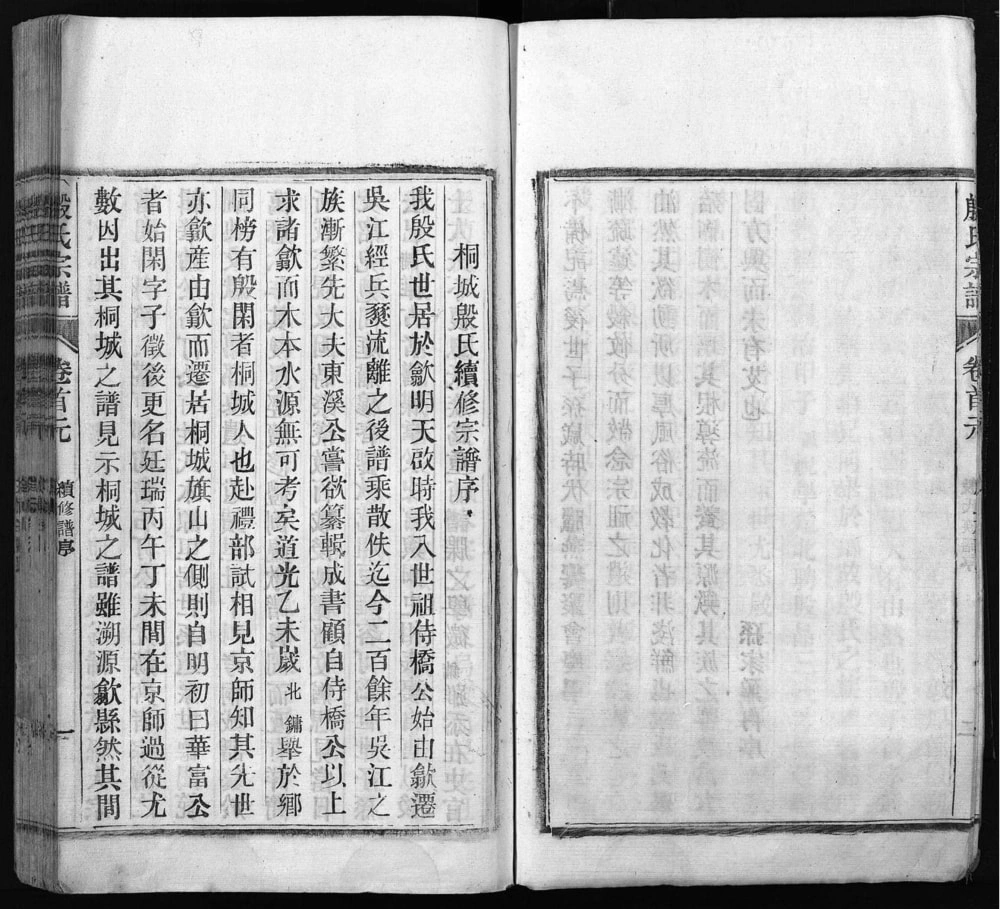 殷氏宗譜
卷首元
桐城殷氏續修宗譜序
我殷氏世居於歙明天啟時我入世祖侍橋公始由歙遷
吳江經兵燹流離之後譜乘散佚迄今二百餘年吳江之
族漸繁先大夫東溪公嘗欲纂輯成書顧自侍橋公以上
求諸歙而木本水源無可考矣道光乙未歲北鏞舉於鄉
同榜有殷閑者桐城人也赴禮部試相見京師知其先世
亦歙産由歙而遷居桐城旗山之側則自明初曰華富公
者始閑字子徵後更名廷瑞丙午丁未間在京師過從尤
數因出其桐城之譜見示桐城之譜雖溯源歙縣然其間
殷氏宗譜
卷首元
續修譜序
一